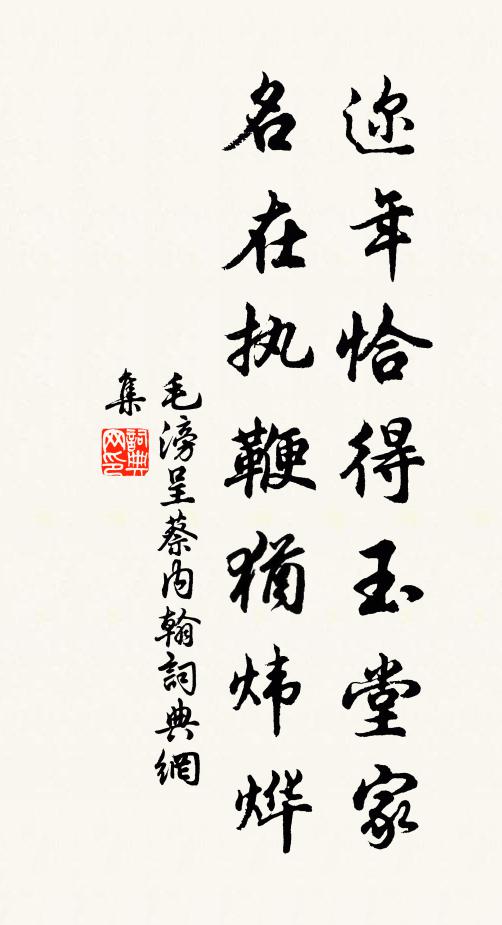 迩年恰得玉堂家
名在执鞭猶炜烨
毛滂呈蔡内翰詞典網
集
詞典网印